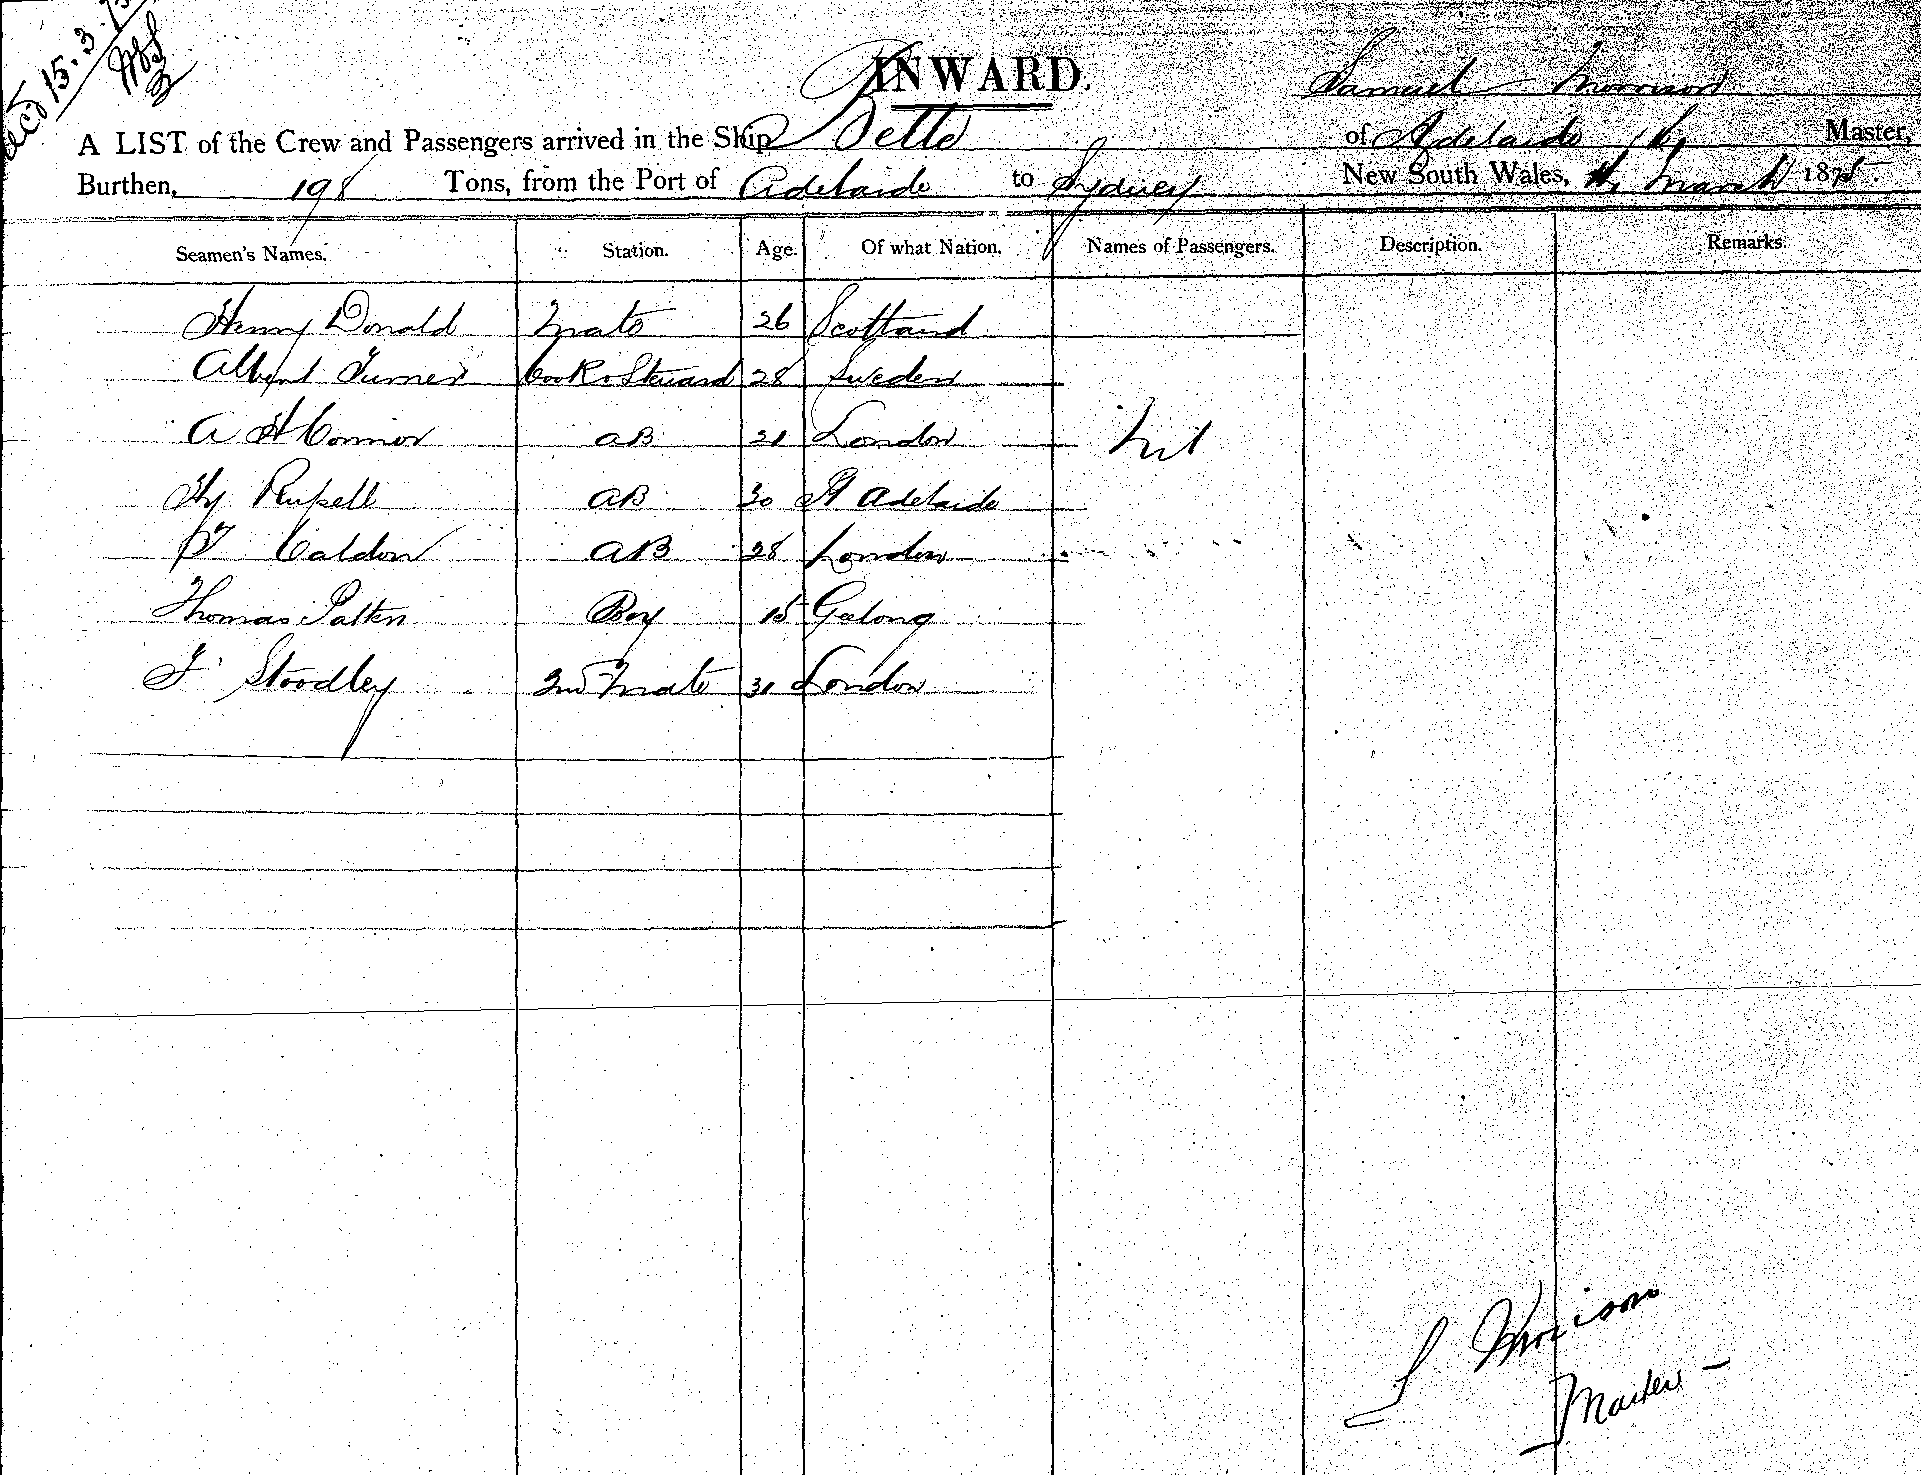 Recd 15.3.75
INWARD.
Samuel Morrison
A LIST of the Crew and Passengers arrived in the Ship Bella of Adelaide Master,
Burthen, 198 Tons, from the Port of Adelaide to Sydney New South Wales, March 1875.
Seamen's Names. Station. Age. Of what Nation. Names of Passengers. Description. Remarks.
Henry Donald Mate 26 Scotland
Albert Turner Cook & Steward 28 Sweden
A H Connor AB 21 London Nil
Hy Russell AB 30 Pt Adelaide
Caldow AB 28 London
Thomas Patten Boy 15 Gelong
F Stoodley 2nd Mate 31 London
S Morrison
Master